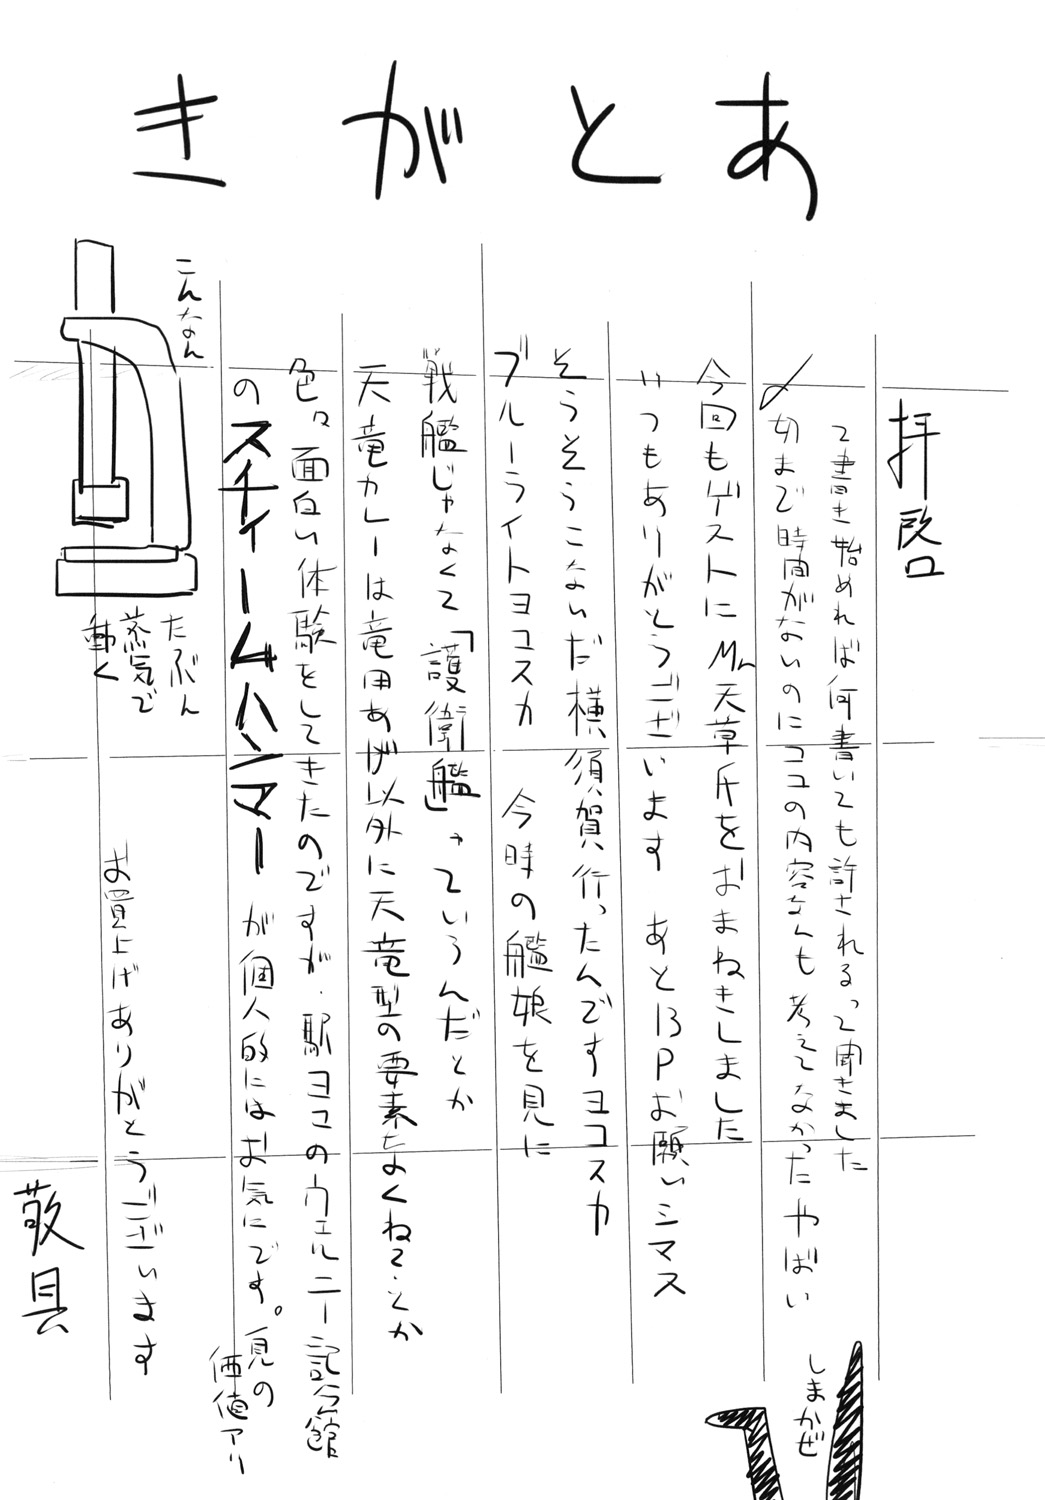 あとがき
拝啓
って書き始めれば何書いても許されるって聞きました
〆切まで時間がないのにココの内容なんも考えてなかったやばい
今回もゲストにMr天草氏をおまねきしました
いつもありがとうございます あと13Pお願いシマス
そうそうこないだ横須賀行ったんですヨコスカ
ブルーライトヨコスカ 今時の艦娘を見に
戦艦じゃなくて「護衛艦」っていうんだとか
天竜カレーは竜田あげ以外に天竜型の要素なくね?とか
色々面白い体験をしてきたのですが、駅ヨコのヴェルニー記念館
のスチームハンマーが個人的にはお気にです。見の
価値アリ
こんなん
たぶん
蒸気で
動く
お買上げありがとうございます
敬具
しまかぜ